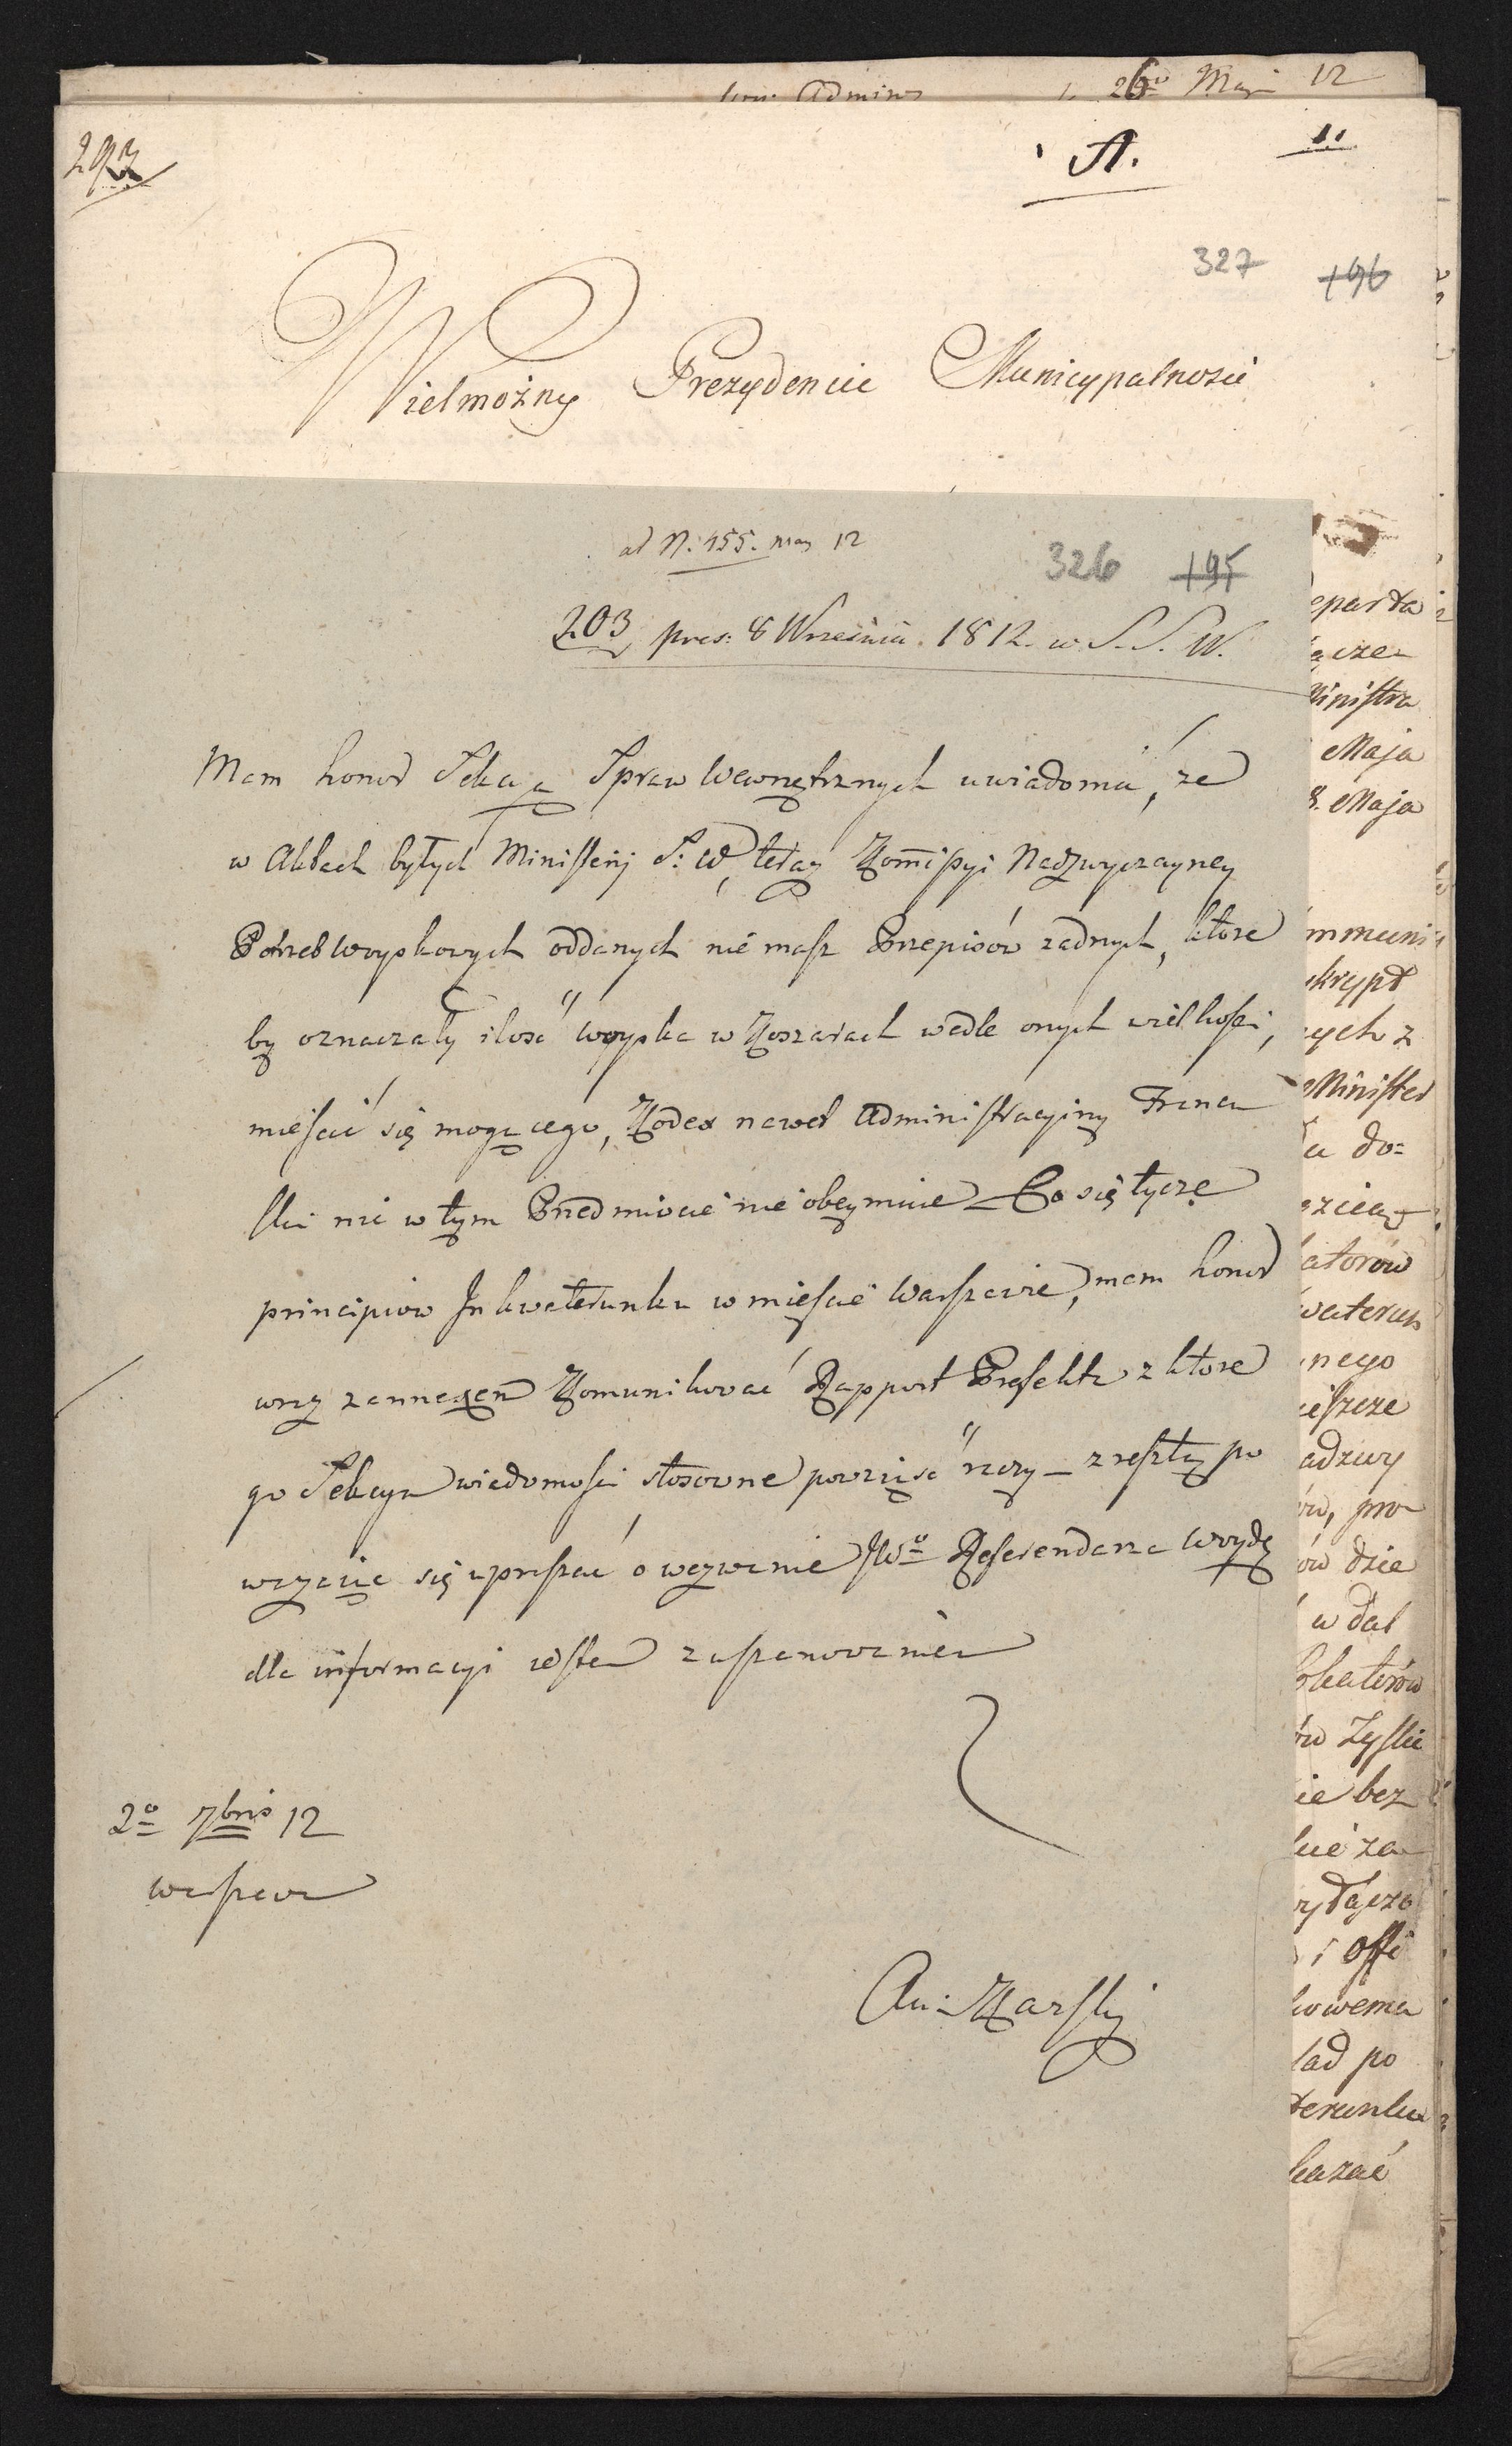 26go May 12
293
A.
11
327 196
Wielmożny Prezydencie Municypalnosci
ad N. 455. man 12
326 195
203 pres: 8 Września 1812. w S. S. W.
Mam honor Sekcyą Spraw Wewnętrznych uwiadomić, że
w Aktach byłych Ministerij S: W, teraz Kommissyi Nadzwyczayney
Potrzeb Woyskowych oddanych nie masz Przepisów żadnych, ktore
by oznaczały ilość woyska w Koszarach wedle onych wielkości,
mieścić się mogącego, Kodex nawet Administracyiny Francu
ski nic w tym Przedmiocie nie obeymuie – Co się tycze
principiow Inkwaterunku w mieście Warszawie, mam honor
wraz z annexem Komunikować Rapport Prefekta z ktore
go Sekcya wiadomości stosowne powziąść raczy – zresztą po
ważaię się upraszać o wezwanie JWo Referendarza Woydę
dla informacyi
z uszanowaniem
2o 7bris 12
Warszawa
Karski
eparta
ącze
Ministra
Maja
8. Maja
mmuni
skrypt
ych z
Minister
do=
atorów
waterun
nego
ieszcze
adzwy
ów, pro
ów dzie
w dal
okatorów
ów Zyski
ie bez
kie za
i offi
kowemu
ład po
terunku
kazać